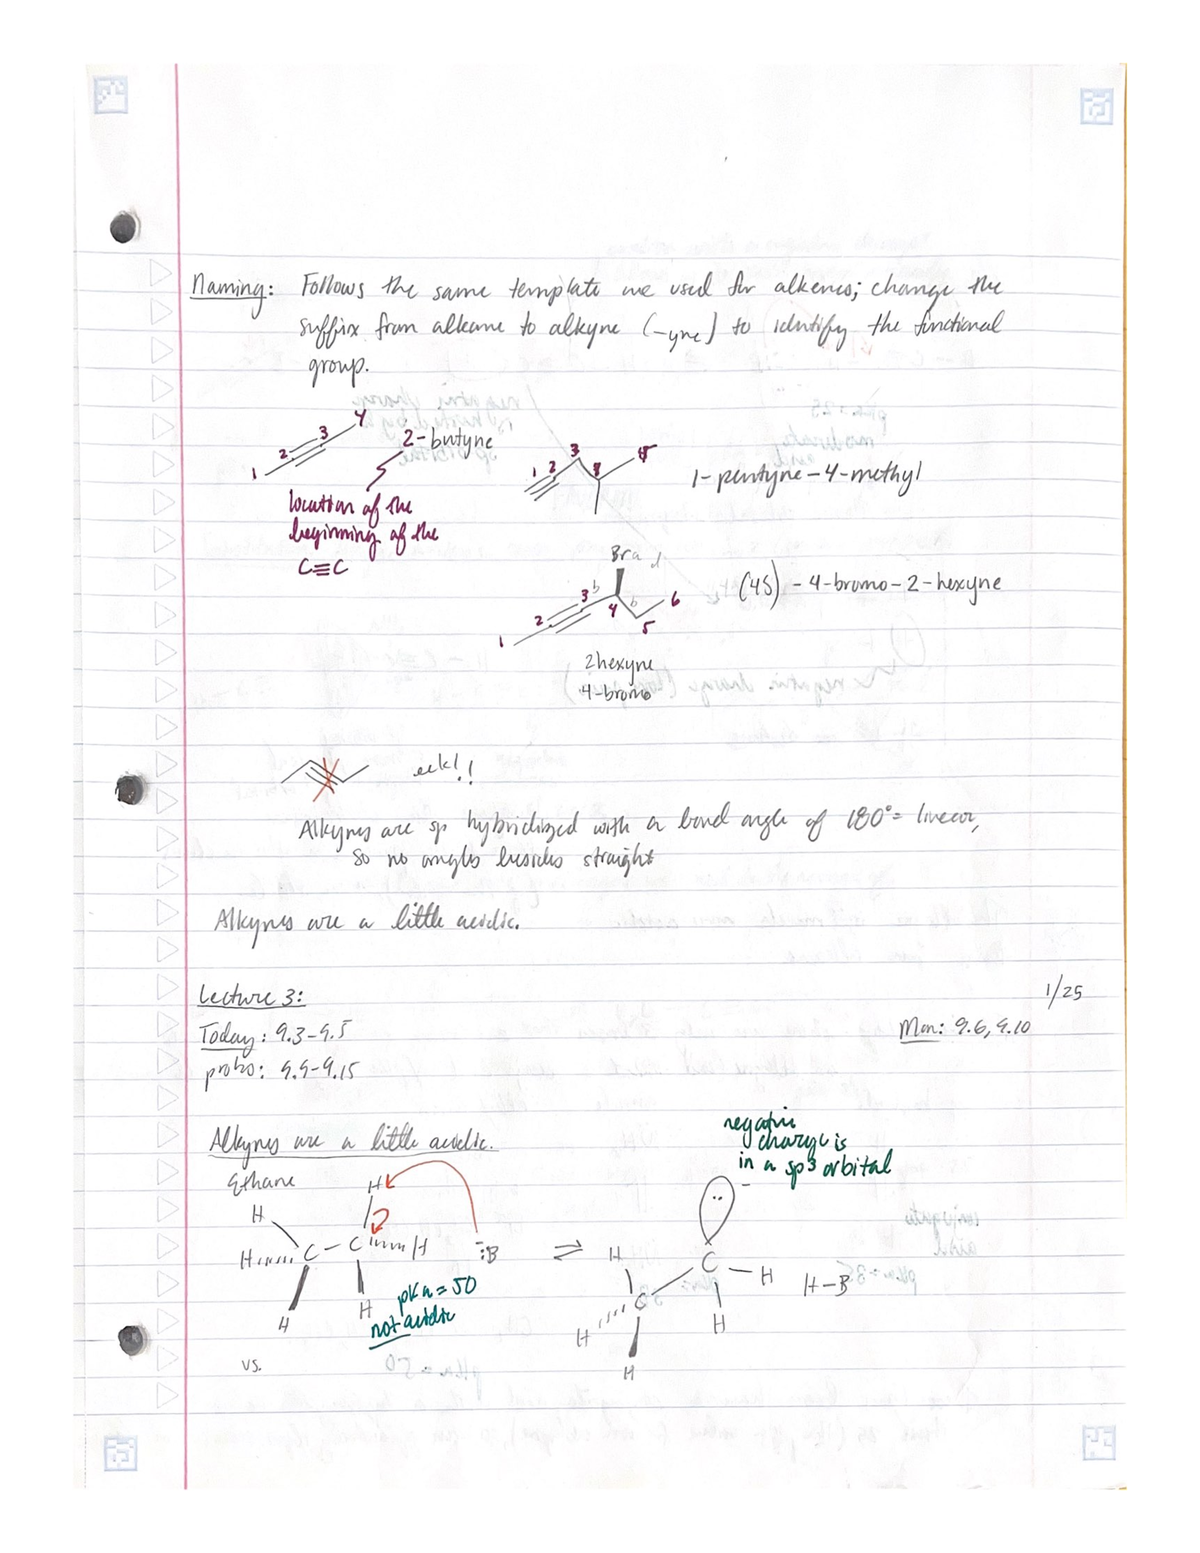 Naming: Follows the same template we used for alkenes; change the
suffix from alkane to alkyne (-yne) to identify the functional
group.
1 2 3 4
2-butyne
location of the
beginning of the
C≡C
1 2 3 4 5
1-pentyne-4-methyl
Br a d
1 2 3 b 4 b 5 6
(4S)-4-bromo-2-hexyne
2hexyne
4-bromo
eek!!
Alkynes are sp hybridized with a bond angle of 180°= linear,
so no angles besides straight
Alkynes are a little acidic.
Lecture 3: 1/25
Today: 9.3-9.5 Mon: 9.6, 9.10
probs: 9.9-9.15
Alkynes are a little acidic.
negative
charge is
in a sp3 orbital
Ethane
H
H
H C - C H
H H
-:B
⇌
pKa = 50
not acidic
-
H C - H
H C H
H
H-B
vs.